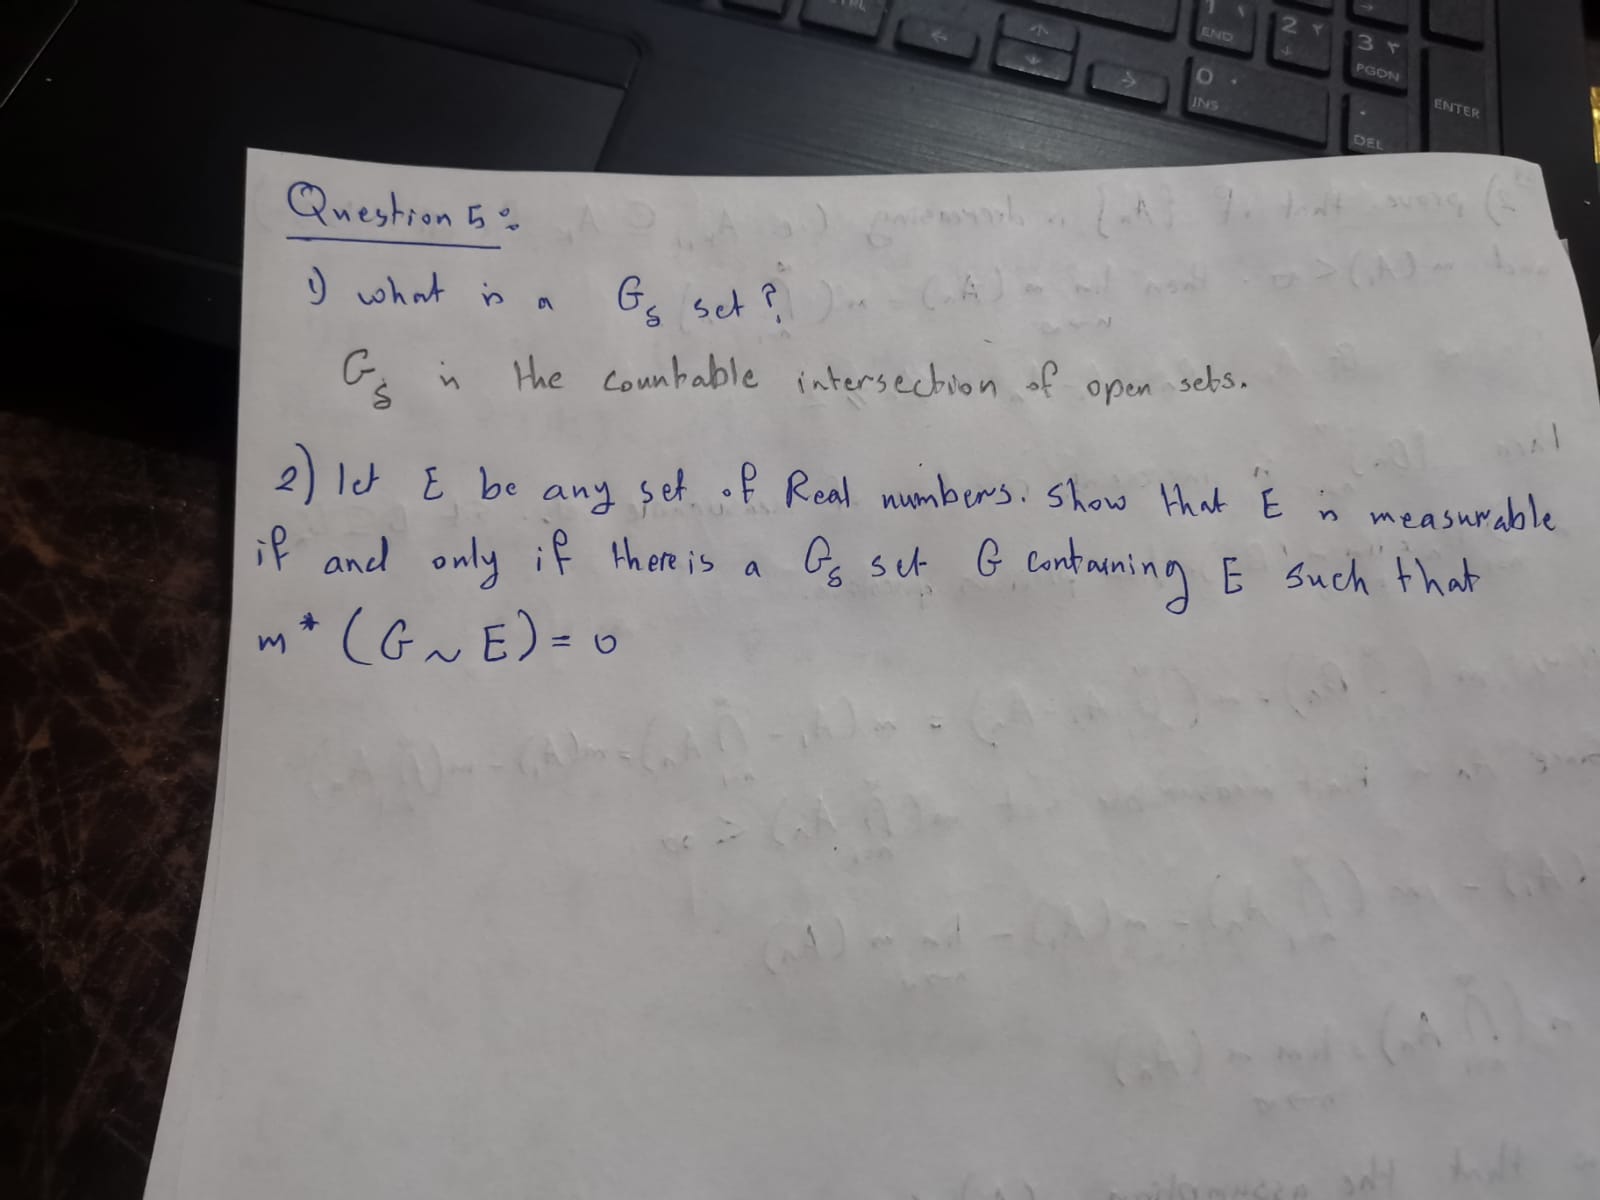 END
2 ٢
3 ٣
PGDN
0 ٠
INS
ENTER
DEL
Question 5:
1) what is a Gδ set?
Gδ is the countable intersection of open sets.
2) let E be any set of Real numbers. Show that E is measurable
if and only if there is a Gδ set G containing E such that
m* (G ~ E) = 0